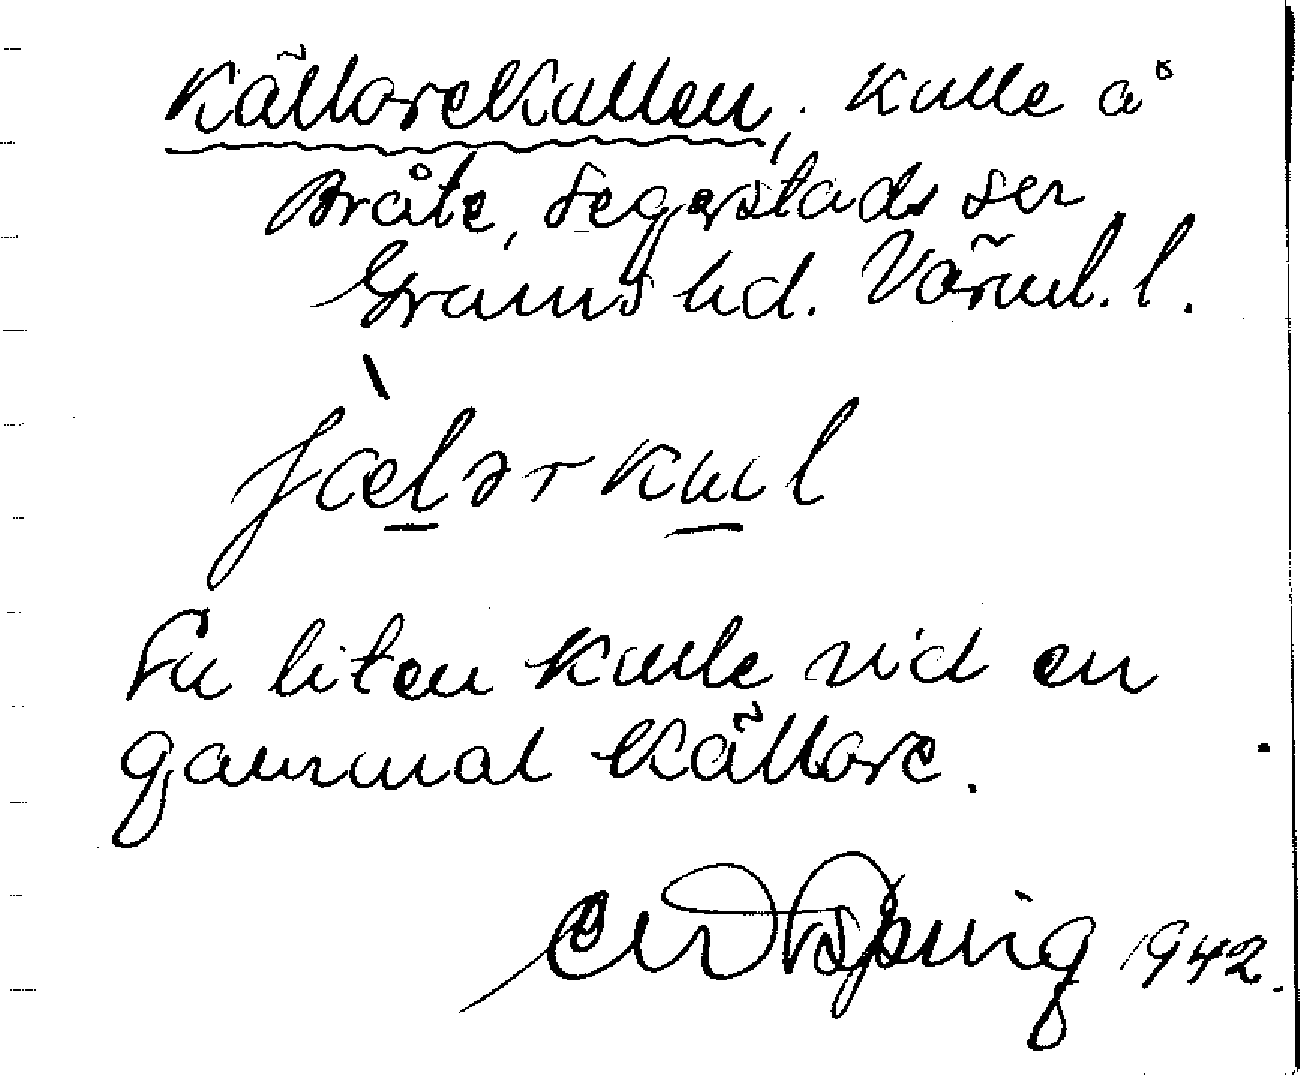 Källarekullen, kulle å
Bråte, Segerstads sn
Grums hd. Värml. l.
jælər kul
En liten kulle vid en
gammal källare.
1942.